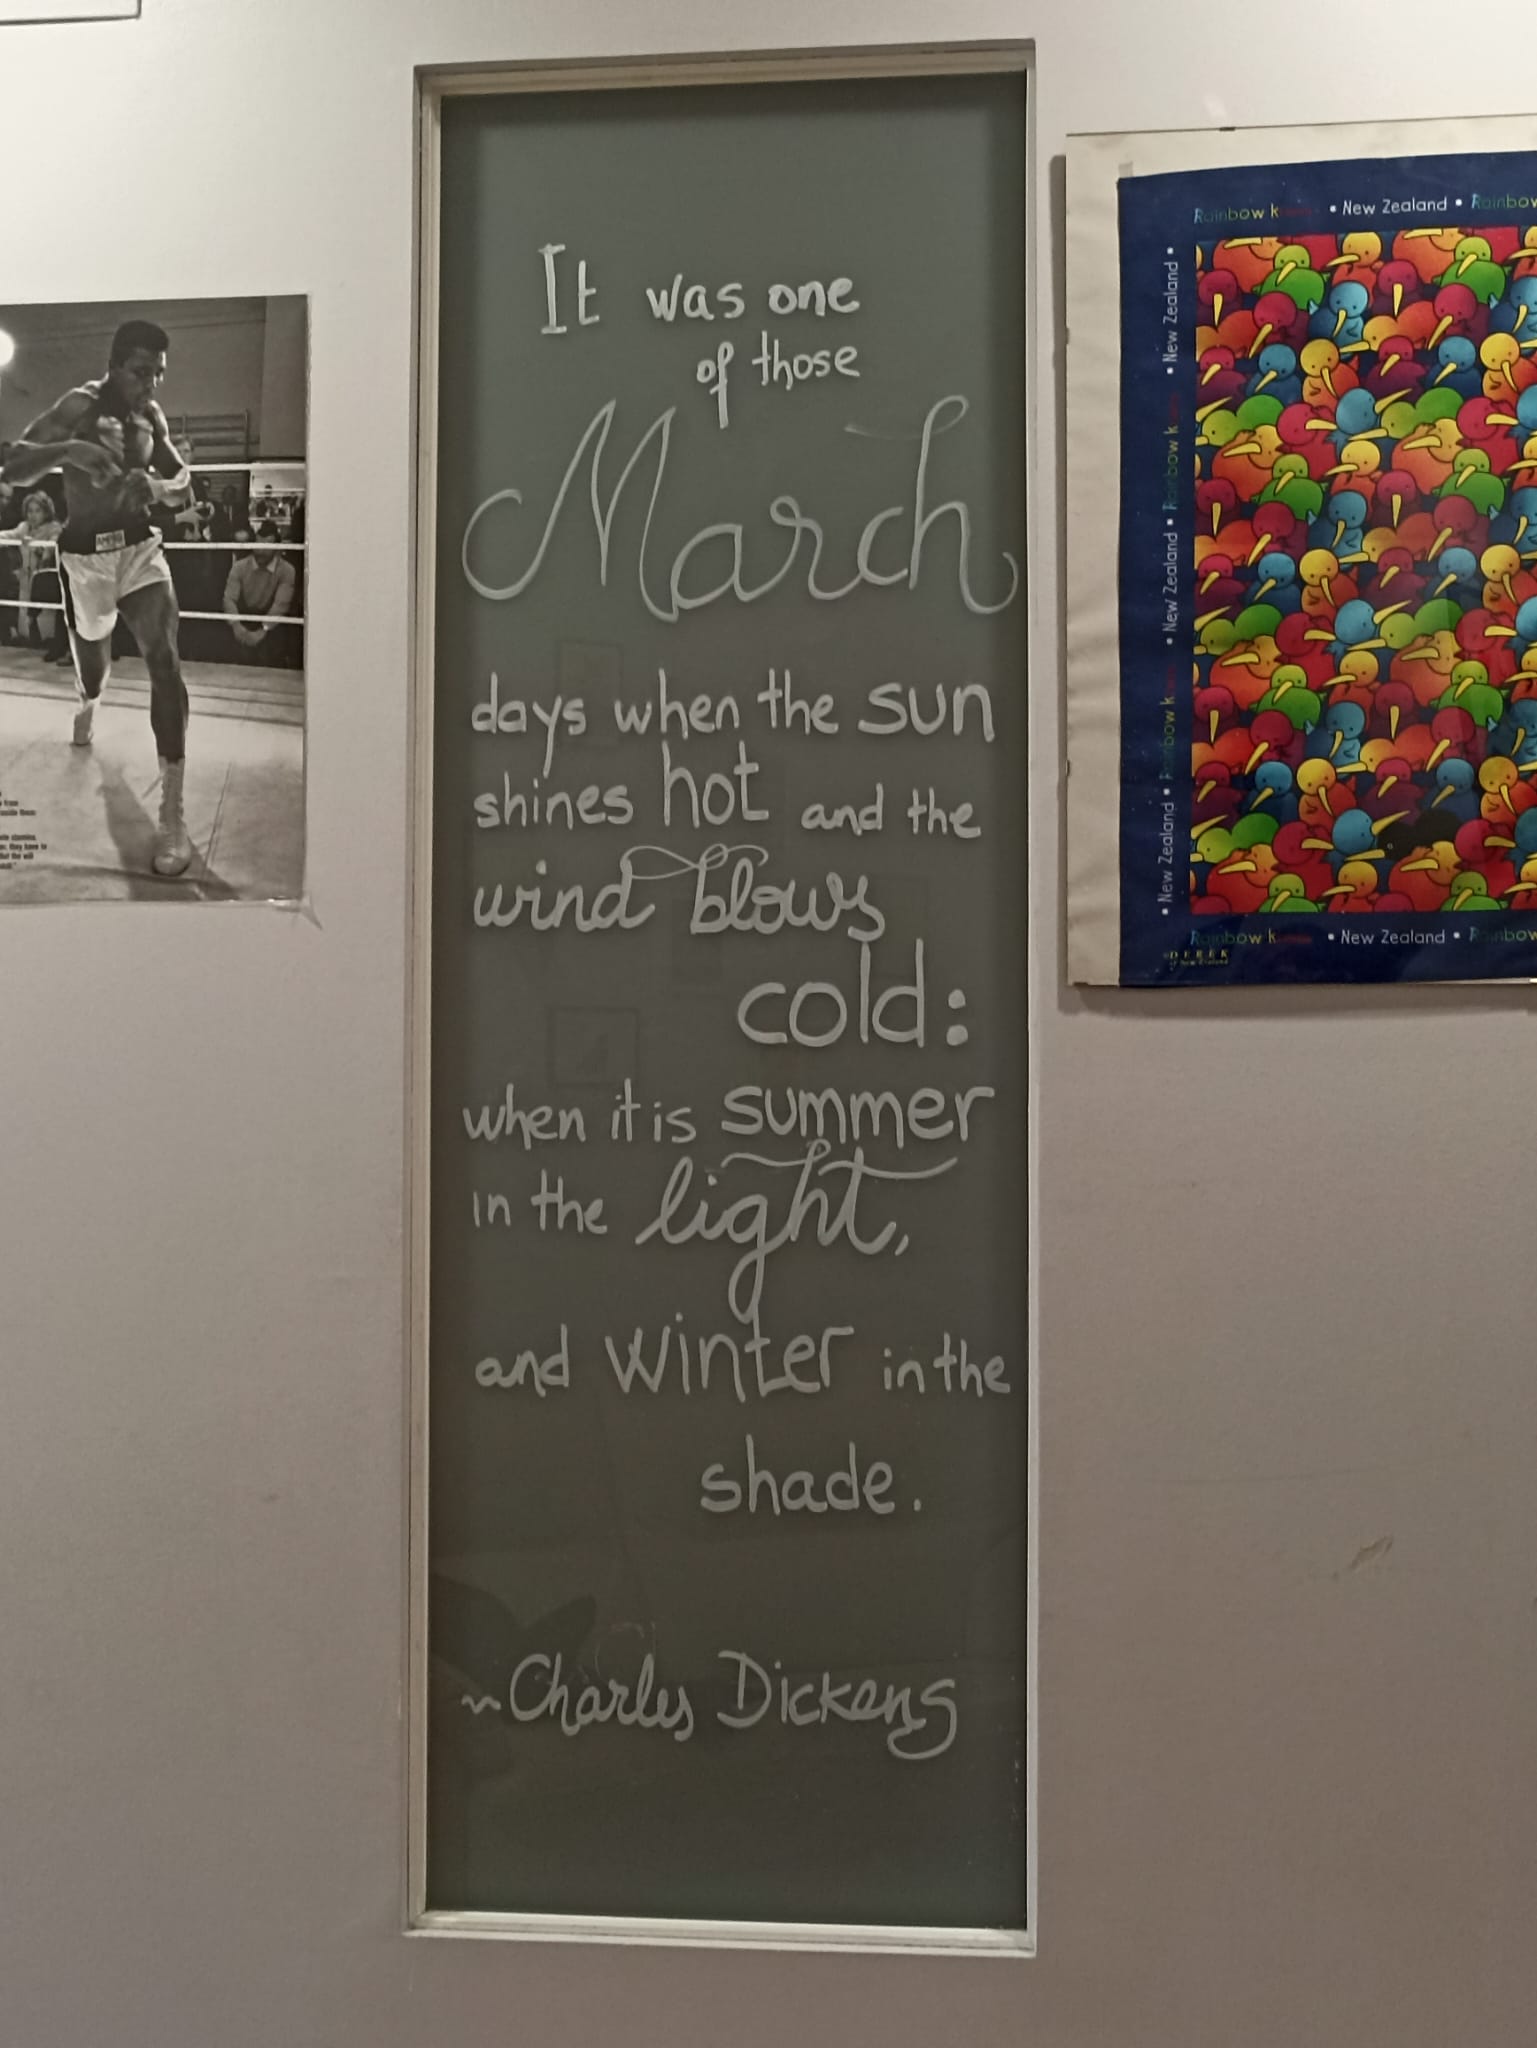 It was one
of those
March
days when the sun
shines hot and the
wind blows
cold:
when it is summer
in the light,
and winter in the
shade.
~ Charles Dickens
Rainbow k • New Zealand • Rainbow
• New Zealand • Rainbow k • New Zealand • Rainbow k • New Zealand •
Rainbow k • New Zealand • Rainbow
DEREK
New Zealand